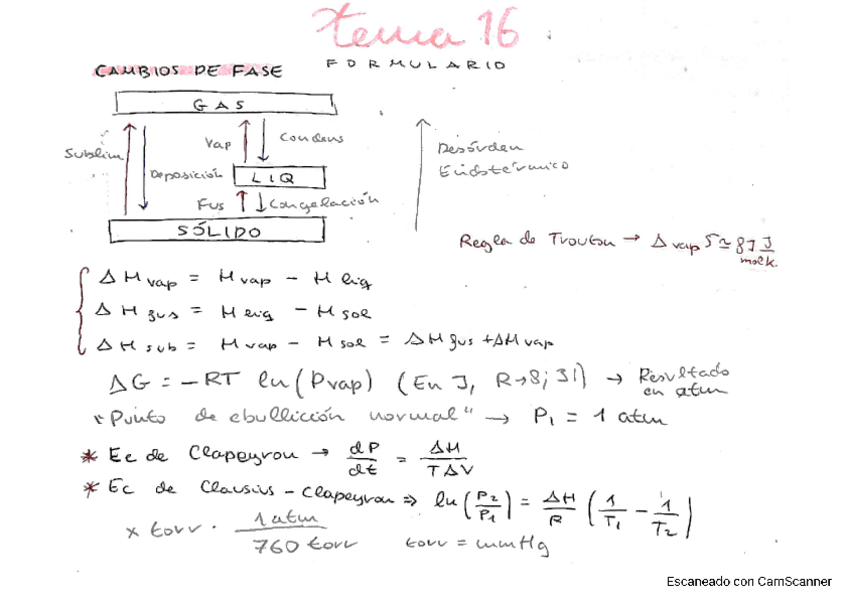 tema 16
FORMULARIO
CAMBIOS DE FASE
GAS
Sublim
Vap
Condens
Deposición
LIQ
Fus
Congelación
SÓLIDO
Desórden
Endotérmico
Regla de Trouton → Δvap S ≃ 87 J/molK.
ΔHvap = Hvap - Hliq
ΔHfus = Hliq - Hsol
ΔHsub = Hvap - Hsol = ΔHfus + ΔHvap
ΔG = -RT ln(Pvap) (En J, R→8'31) → Resultado en atm
"Punto de ebullicción normal" → P₁ = 1 atm
* Ec de Clapeyron → dP/dt = ΔH/TΔV
* Ec de Clausius-Clapeyron ⇒ ln(P₂/P₁) = ΔH/R (1/T₁ - 1/T₂)
x torr · 1 atm/760 torr torr = mmHg
Escaneado con CamScanner